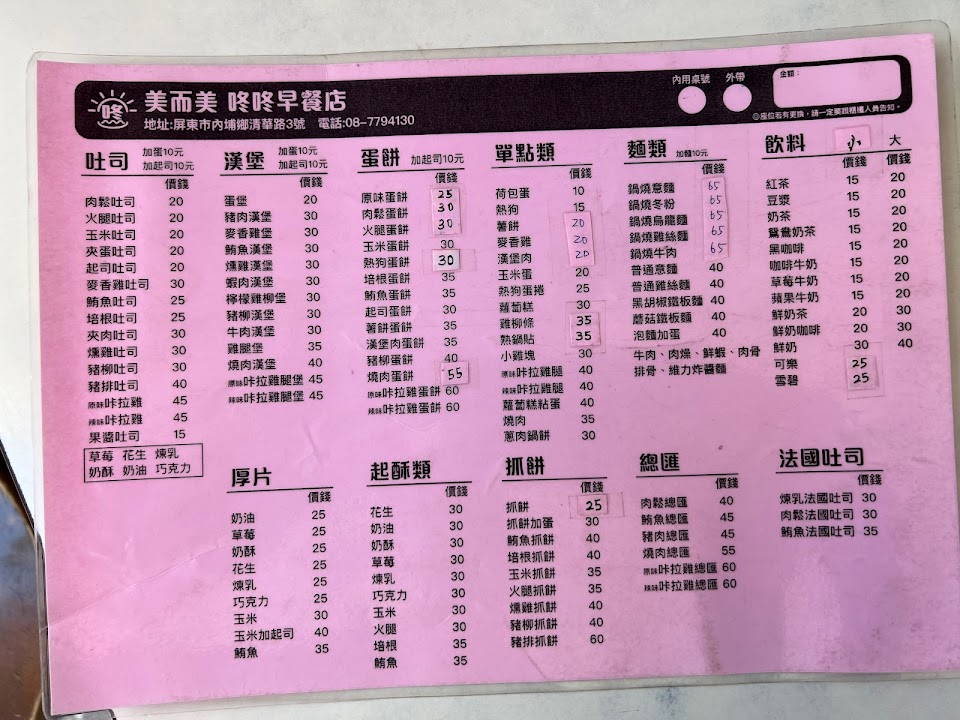 咚 美而美 咚咚早餐店
地址:屏東市內埔鄉清華路3號 電話:08-7794130
內用桌號 外帶 金額:
◎座位若有更換,請一定要跟櫃檯人員告知。
吐司 加蛋10元 加起司10元
價錢
肉鬆吐司 20
火腿吐司 20
玉米吐司 20
夾蛋吐司 20
起司吐司 20
麥香雞吐司 30
鮪魚吐司 25
培根吐司 25
夾肉吐司 30
燻雞吐司 30
豬柳吐司 30
豬排吐司 40
原味咔拉雞 45
辣味咔拉雞 45
果醬吐司 15
草莓 花生 煉乳
奶酥 奶油 巧克力
漢堡 加蛋10元 加起司10元
價錢
蛋堡 20
豬肉漢堡 30
麥香雞堡 30
鮪魚漢堡 30
燻雞漢堡 30
蝦肉漢堡 30
檸檬雞柳堡 30
豬柳漢堡 30
牛肉漢堡 30
雞腿堡 35
燒肉漢堡 40
原味咔拉雞腿堡 45
辣味咔拉雞腿堡 45
蛋餅 加起司10元
價錢
原味蛋餅 25
肉鬆蛋餅 30
火腿蛋餅 30
玉米蛋餅 30
熱狗蛋餅 30
培根蛋餅 35
鮪魚蛋餅 35
起司蛋餅 30
薯餅蛋餅 35
漢堡肉蛋餅 35
豬柳蛋餅 40
燒肉蛋餅 55
原味咔拉雞蛋餅 60
辣味咔拉雞蛋餅 60
單點類
價錢
荷包蛋 10
熱狗 15
薯餅 20
麥香雞 20
漢堡肉 20
玉米蛋 20
熱狗蛋捲 25
蘿蔔糕 30
雞柳條 35
熟鍋貼 35
小雞塊 30
原味咔拉雞腿 40
辣味咔拉雞腿 40
蘿蔔糕粘蛋 40
燒肉 35
蔥肉鍋餅 30
麵類 加麵10元
價錢
鍋燒意麵 65
鍋燒冬粉 65
鍋燒烏龍麵 65
鍋燒雞絲麵 65
鍋燒牛肉 65
普通意麵 40
普通雞絲麵 40
黑胡椒鐵板麵 40
蘑菇鐵板麵 40
泡麵加蛋 40
牛肉、肉燥、鮮蝦、肉骨
排骨、維力炸醬麵
飲料 小 大
價錢 價錢
紅茶 15 20
豆漿 15 20
奶茶 15 20
鴛鴦奶茶 15 20
黑咖啡 15 20
咖啡牛奶 15 20
草莓牛奶 15 20
蘋果牛奶 15 20
鮮奶茶 20 30
鮮奶咖啡 20 30
鮮奶 30 40
可樂 25
雪碧 25
厚片
價錢
奶油 25
草莓 25
奶酥 25
花生 25
煉乳 25
巧克力 25
玉米 30
玉米加起司 40
鮪魚 35
起酥類
價錢
花生 30
奶油 30
奶酥 30
草莓 30
煉乳 30
巧克力 30
玉米 30
火腿 30
培根 35
鮪魚 35
抓餅
價錢
抓餅 25
抓餅加蛋 30
鮪魚抓餅 40
培根抓餅 40
玉米抓餅 35
火腿抓餅 35
燻雞抓餅 40
豬柳抓餅 40
豬排抓餅 60
總匯
價錢
肉鬆總匯 40
鮪魚總匯 45
豬肉總匯 45
燒肉總匯 55
原味咔拉雞總匯 60
辣味咔拉雞總匯 60
法國吐司
價錢
煉乳法國吐司 30
肉鬆法國吐司 30
鮪魚法國吐司 35